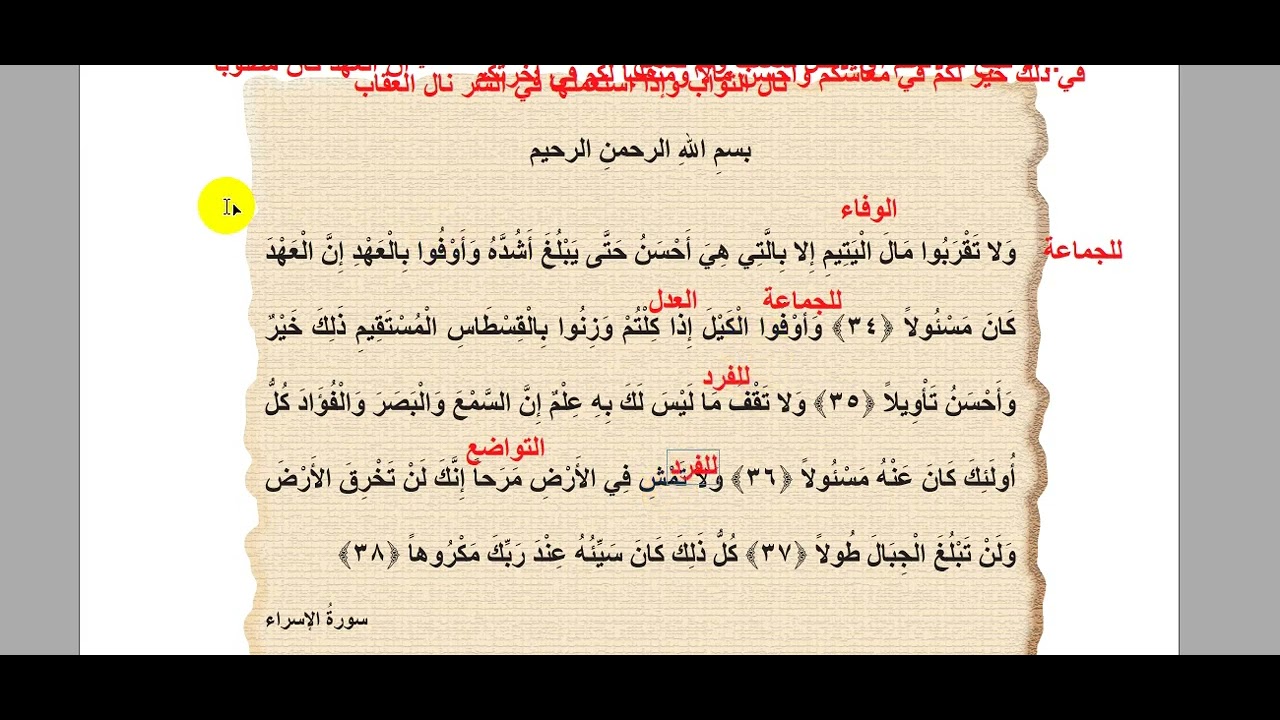 في ذلك خير لكم في معاشكم وأحسن مآلا ومنقلبا لكم في آخرتكم
نال الثواب وإذا استعملها في الشر نال العقاب
بسمِ اللهِ الرحمنِ الرحيم
الوفاء
للجماعة
وَلا تَقْرَبُوا مَالَ الْيَتِيمِ إِلا بِالَّتِي هِيَ أَحْسَنُ حَتَّى يَبْلُغَ أَشُدَّهُ وَأَوْفُوا بِالْعَهْدِ إِنَّ الْعَهْدَ
للجماعة العدل
كَانَ مَسْئُولاً ﴿٣٤﴾ وَأَوْفُوا الْكَيْلَ إِذَا كِلْتُمْ وَزِنُوا بِالْقِسْطَاسِ الْمُسْتَقِيمِ ذَلِكَ خَيْرٌ
للفرد
وَأَحْسَنُ تَأْوِيلاً ﴿٣٥﴾ وَلا تَقْفُ مَا لَيْسَ لَكَ بِهِ عِلْمٌ إِنَّ السَّمْعَ وَالْبَصَرَ وَالْفُؤَادَ كُلُّ
للفرد التواضع
أُولَئِكَ كَانَ عَنْهُ مَسْئُولاً ﴿٣٦﴾ وَلا تَمْشِ فِي الأَرْضِ مَرَحاً إِنَّكَ لَنْ تَخْرِقَ الأَرْضَ
وَلَنْ تَبْلُغَ الْجِبَالَ طُولاً ﴿٣٧﴾ كُلُّ ذَلِكَ كَانَ سَيِّئُهُ عِنْدَ رَبِّكَ مَكْرُوهاً ﴿٣٨﴾
سورةُ الإسراء